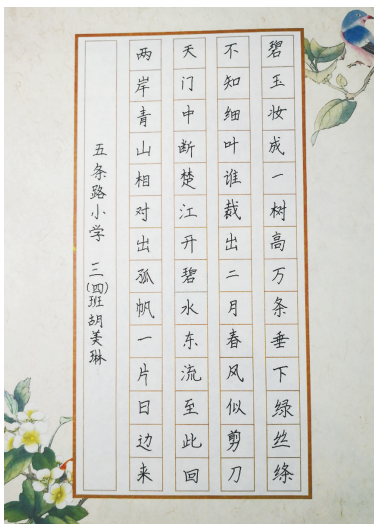 碧玉妆成一树高万条垂下绿丝绦
不知细叶谁裁出二月春风似剪刀
天门中断楚江开碧水东流至此回
两岸青山相对出孤帆一片日边来
五条路小学 三(四)班胡美琳